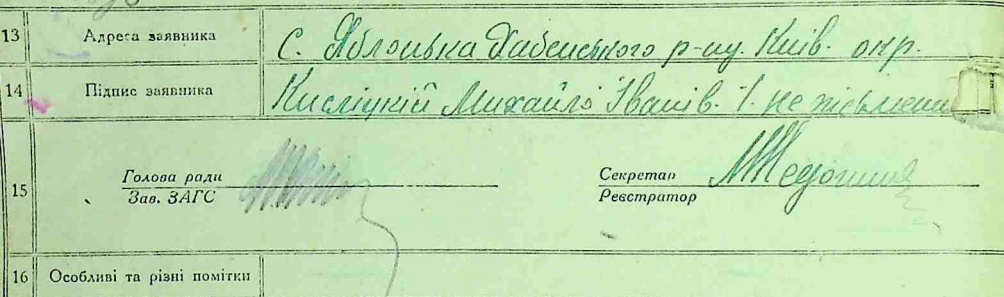 13 Адреса заявника с. Яблонька Хабенського р-ну. Київ. окр.
14 Підпис заявника Кисліцкій Михайло Іванів. І. не письменн
15 Голова ради
Зав. ЗАГС
Секретар
Реєстратор
16 Особливі та різні помітки